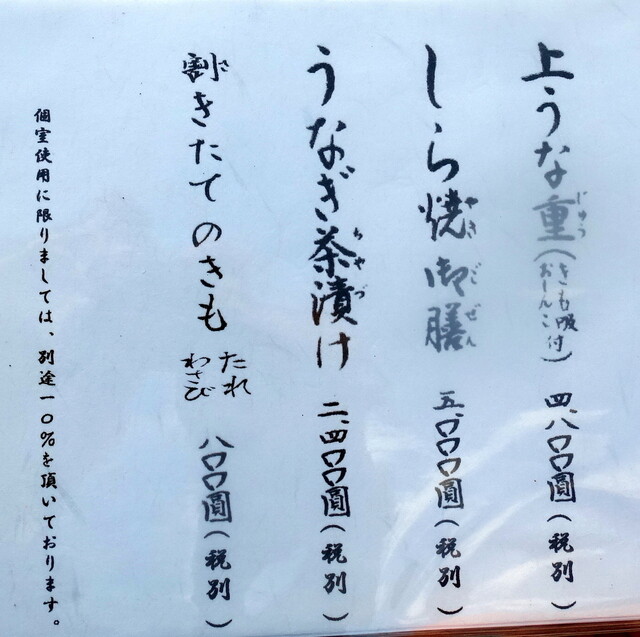 上うな重(じゅう)(きも吸付 おしんこ) 四、八〇〇圓(税別)
しら焼(やき)御(ご)膳(ぜん) 五、〇〇〇圓(税別)
うなぎ茶(ちゃ)漬(づ)け 二、四〇〇圓(税別)
割(さ)きたてのきも たれ わさび 八〇〇圓(税別)
個室使用に限りましては、別途一〇%を頂いております。